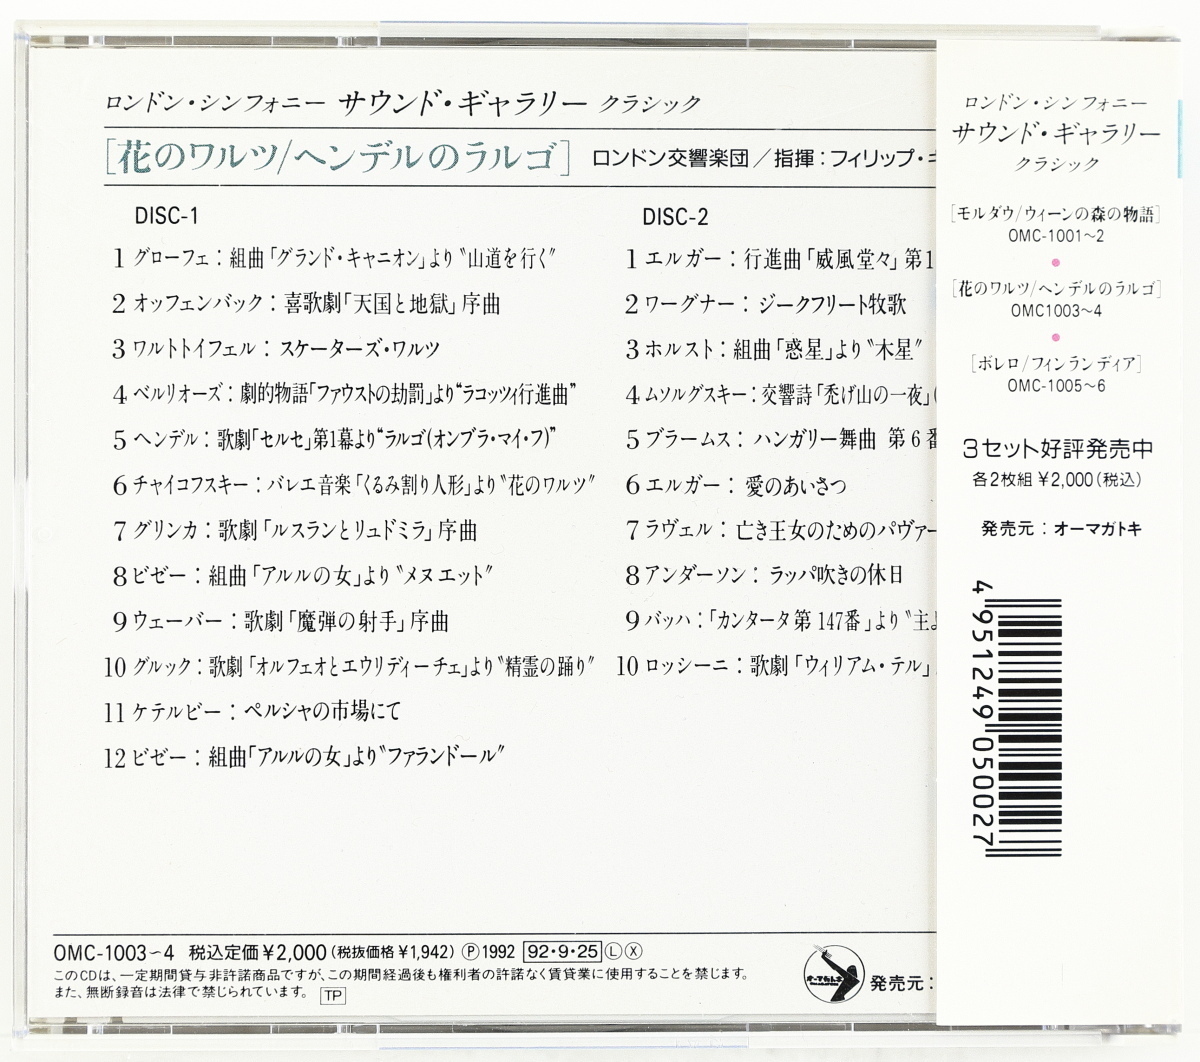 ロンドン・シンフォニー サウンド・ギャラリー クラシック
[花のワルツ/ヘンデルのラルゴ] ロンドン交響楽団/指揮:フィリップ・
DISC-1
1 グローフェ:組曲「グランド・キャニオン」より〝山道を行く〞
2 オッフェンバック:喜歌劇「天国と地獄」序曲
3 ワルトトイフェル:スケーターズ・ワルツ
4 ベルリオーズ:劇的物語「ファウストの劫罰」より“ラコッツィ行進曲”
5 ヘンデル:歌劇「セルセ」第1幕より“ラルゴ(オンブラ・マイ・フ)”
6 チャイコフスキー:バレエ音楽「くるみ割り人形」より〝花のワルツ〞
7 グリンカ:歌劇「ルスランとリュドミラ」序曲
8 ビゼー:組曲「アルルの女」より〝メヌエット〞
9 ウェーバー:歌劇「魔弾の射手」序曲
10 グルック:歌劇「オルフェオとエウリディーチェ」より〝精霊の踊り〞
11 ケテルビー:ペルシャの市場にて
12 ビゼー:組曲「アルルの女」より〝ファランドール〞
DISC-2
1 エルガー:行進曲「威風堂々」第1
2 ワーグナー:ジークフリート牧歌
3 ホルスト:組曲「惑星」より〝木星〞
4 ムソルグスキー:交響詩「禿げ山の一夜」(
5 ブラームス:ハンガリー舞曲 第6番
6 エルガー:愛のあいさつ
7 ラヴェル:亡き王女のためのパヴァー
8 アンダーソン:ラッパ吹きの休日
9 バッハ:「カンタータ第147番」より〝主よ
10 ロッシーニ:歌劇「ウィリアム・テル」
OMC-1003~4 税込定価¥2,000(税抜価格¥1,942) Ⓟ1992 92・9・25 Ⓛ Ⓧ
このCDは、一定期間貸与非許諾商品ですが、この期間経過後も権利者の許諾なく賃貸業に使用することを禁じます。
また、無断録音は法律で禁じられています。 TP
オーマガトキ
発売元:
ロンドン・シンフォニー
サウンド・ギャラリー
クラシック
[モルダウ/ウィーンの森の物語]
OMC-1001~2
[花のワルツ/ヘンデルのラルゴ]
OMC1003~4
[ボレロ/フィンランディア]
OMC-1005~6
3セット好評発売中
各2枚組 ¥2,000(税込)
発売元:オーマガトキ
4951249050027